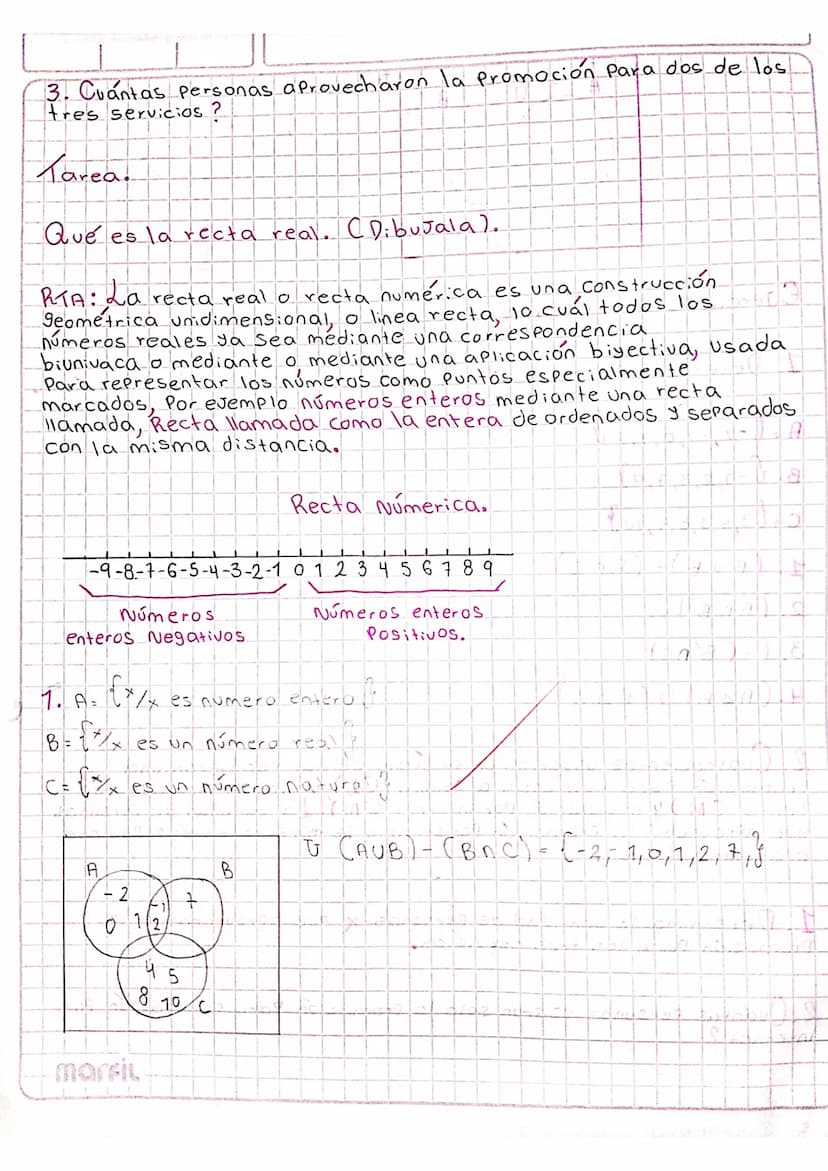 3. Cuántas personas aprovecharon la promoción para dos de los
tres servicios?
Tarea.
Qué es la recta real. (Dibujala).
RTA: La recta real o recta numérica es una construcción
geométrica unidimensional, o linea recta, lo cuál todos los
números reales ya sea mediante una correspondencia
biunivaca o mediante o mediante una aplicación biyectiva, usada
para representar los números como puntos especialmente
marcados, Por ejemplo números enteros mediante una recta
llamada, Recta llamada como la entera de ordenados y separados
con la misma distancia.
Recta Númerica.
-9 -8 -7 -6 -5 -4 -3 -2 -1 0 1 2 3 4 5 6 7 8 9
Números
enteros Negativos
Números enteros
Positivos.
1. A= {x/x es numero entero}
B= {x/x es un número real}
C= {x/x es un número natural}
(A∪B)-(B∩C)= {-2,-1,0,1,2,7,}
A
B
-2
-1
7
0
1
2
4
5
8
10
C
marfil